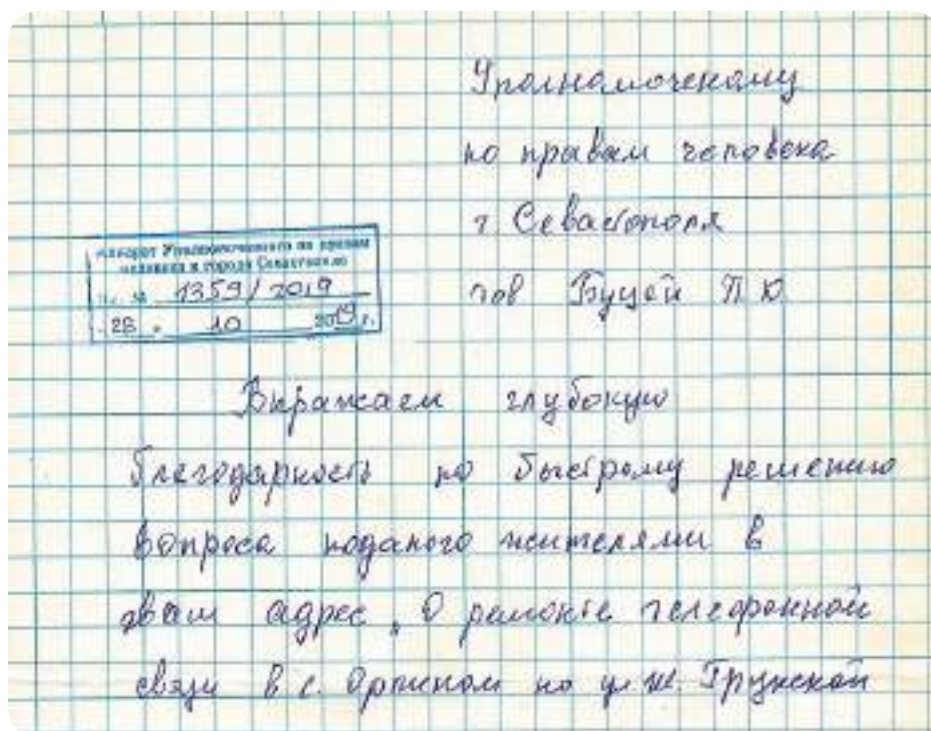 Уполномоченому
по правам человека
г Севастополя
тов Буцай П Ю
Аппарат Уполномоченного по правам
человека в городе Севастополе
Вх. № 1359/2019
28 . 10 2019 г.
Выражаем глубокую
благодарность по быстрому решению
вопроса поданого жителями в
ваш адрес „О ремонте телефонной
связи в с. Орлином по ул.